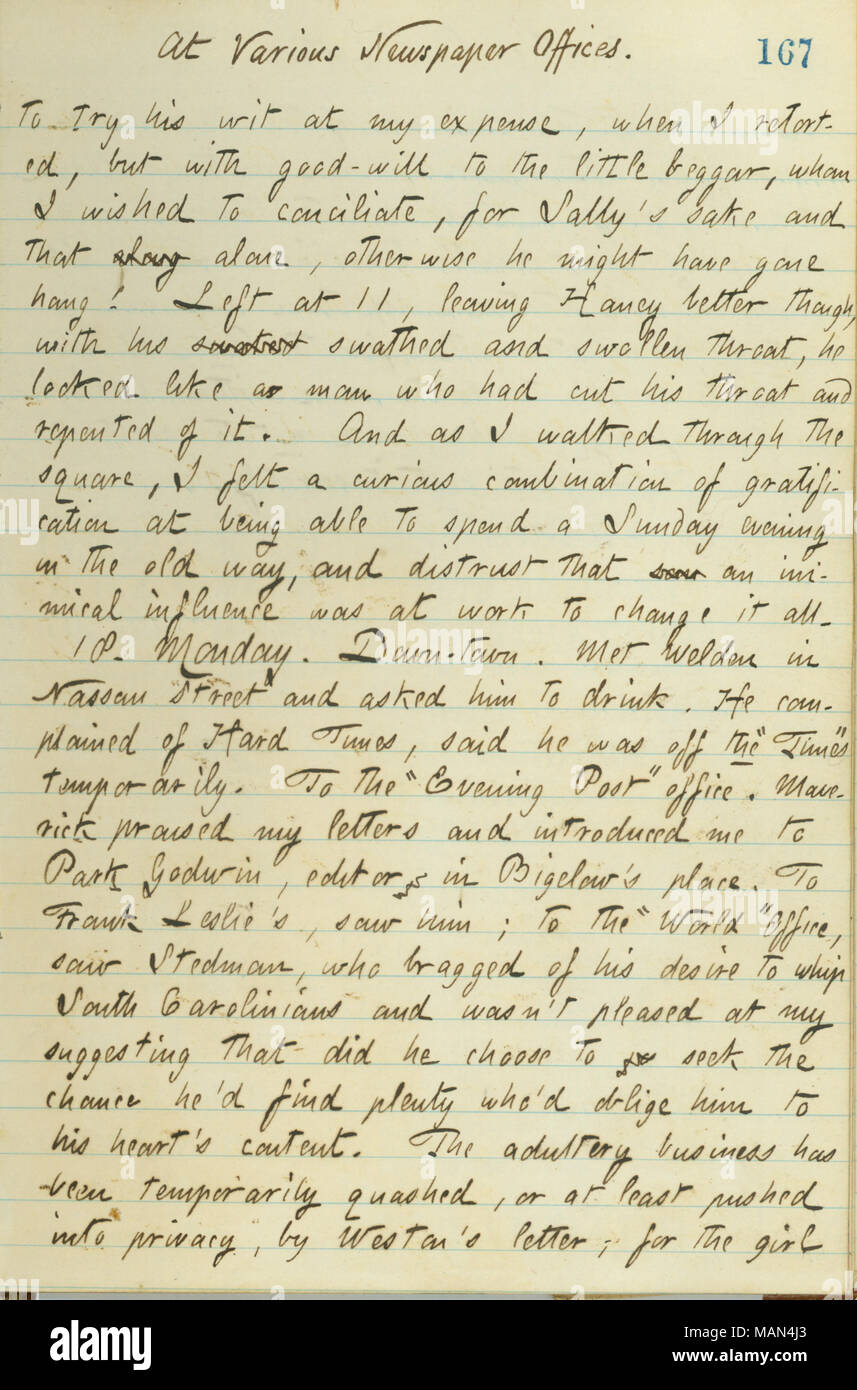 At Various Newspaper Offices.
167
to try his wit at my expense, when I retort-
ed, but with good-will to the little beggar, whom
I wished to conciliate, for Sally's sake and
that alone, otherwise he might have gone
hang! Left at 11, leaving Haney better though,
with his swathed and swollen throat, he
looked like a man who had cut his throat and
repented of it. And as I walked through the
square, I felt a curious combination of gratifi-
cation at being able to spend a Sunday evening
in the old way, and distrust that an ini-
mical influence was at work to change it all.
18. Monday. Down-town. Met Welden in
Nassau Street and asked him to drink. He com-
plained of Hard Times, said he was off the "Times"
temporarily. To the "Evening Post" office. Mave-
rick praised my letters and introduced me to
Park Godwin, editor in Bigelow's place. To
Frank Leslie's, saw him; to the "World" Office,
saw Stedman, who bragged of his desire to whip
South Carolinians and wasn't pleased at my
suggesting that did he choose to seek the
chance he'd find plenty who'd oblige him to
his heart's content. The adultery business has
been temporarily quashed, or at least pushed
into privacy, by Weston's letter; for the girl
alamy
Image ID: MAN4J3
www.alamy.com